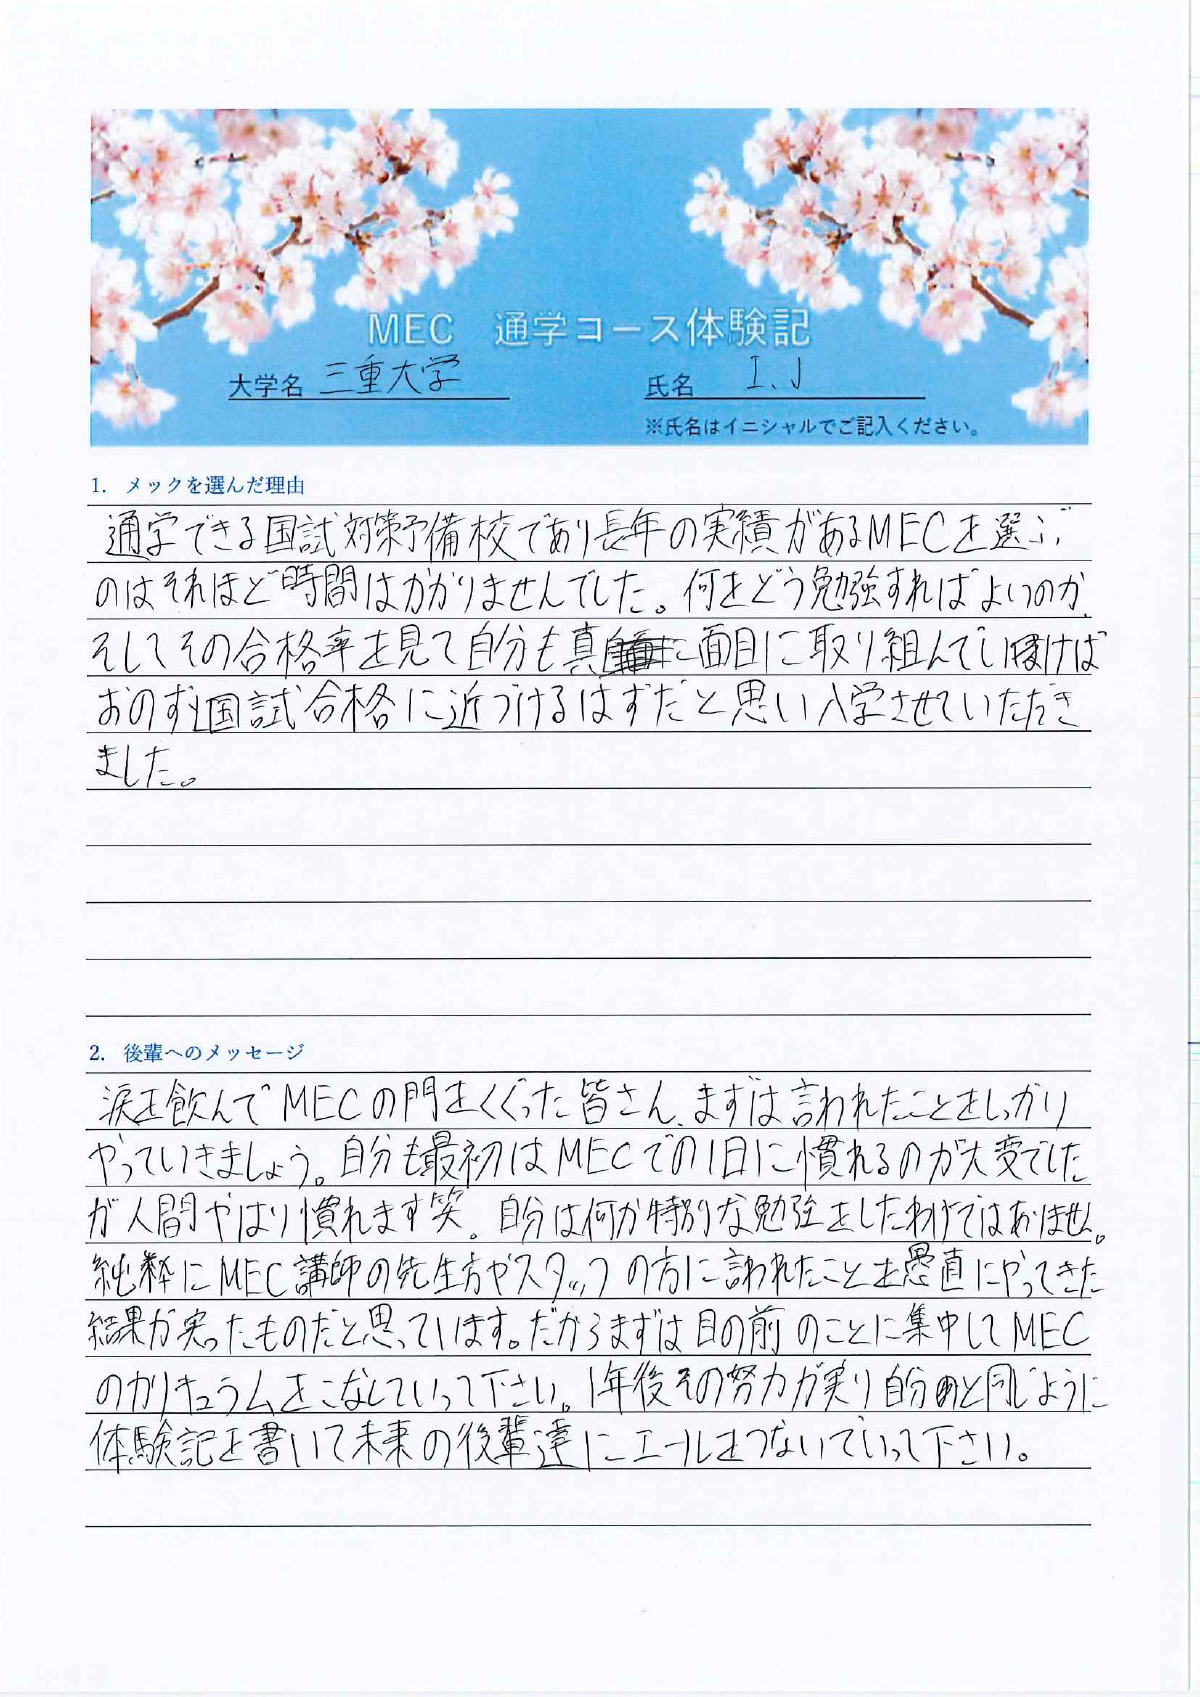 MEC 通学コース体験記
大学名 三重大学 氏名 I.J
※氏名はイニシャルでご記入ください。
1. メックを選んだ理由
通学できる国試対策予備校であり長年の実績があるMECを選ぶ
のはそれほど時間はかかりませんでした。何をどう勉強すればよいのか、
そしてその合格率を見て自分も真面目に取り組んでいけば
おのずと国試合格に近づけるはずだと思い入学させていただき
ました。
2. 後輩へのメッセージ
涙を飲んでMECの門をくぐった皆さん、まずは言われたことをしっかり
やっていきましょう。自分も最初はMECでの1日に慣れるのが大変でした
が人間やはり慣れます笑。自分は何か特別な勉強をしたわけではありません。
純粋にMEC講師の先生方やスタッフの方に言われたことを愚直にやってきた
結果が実ったものだと思っています。だからまずは目の前のことに集中してMEC
のカリキュラムをこなしていって下さい。1年後その努力が実り自分と同じように
体験記を書いて未来の後輩達にエールをつないでいって下さい。